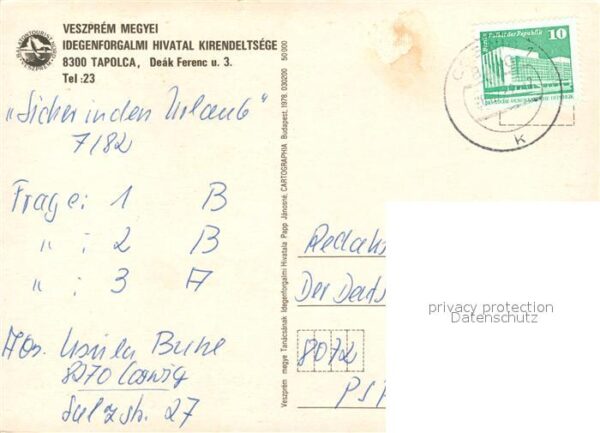 VESZPRÉM MEGYEI
IDEGENFORGALMI HIVATAL KIRENDELTSÉGE
8300 TAPOLCA, Deák Ferenc u. 3.
Tel :23
„Sicher in den Urlaub“
7/82
Frage: 1 B
" : 2 B
" : 3 A
Ursula
8270 Coswig
Sulzstr. 27
Veszprém megye Tanácsának Idegenforgalmi Hivatala Papp Jánosné, CARTOGRAPHIA Budapest, 1978 030200 50 000
10
Berlin Palast der Republik
DEUTSCHE DEMOKRATISCHE REPUBLIK
k
Redak
Der Deuts
8072
PSF
privacy protection
Datenschutz